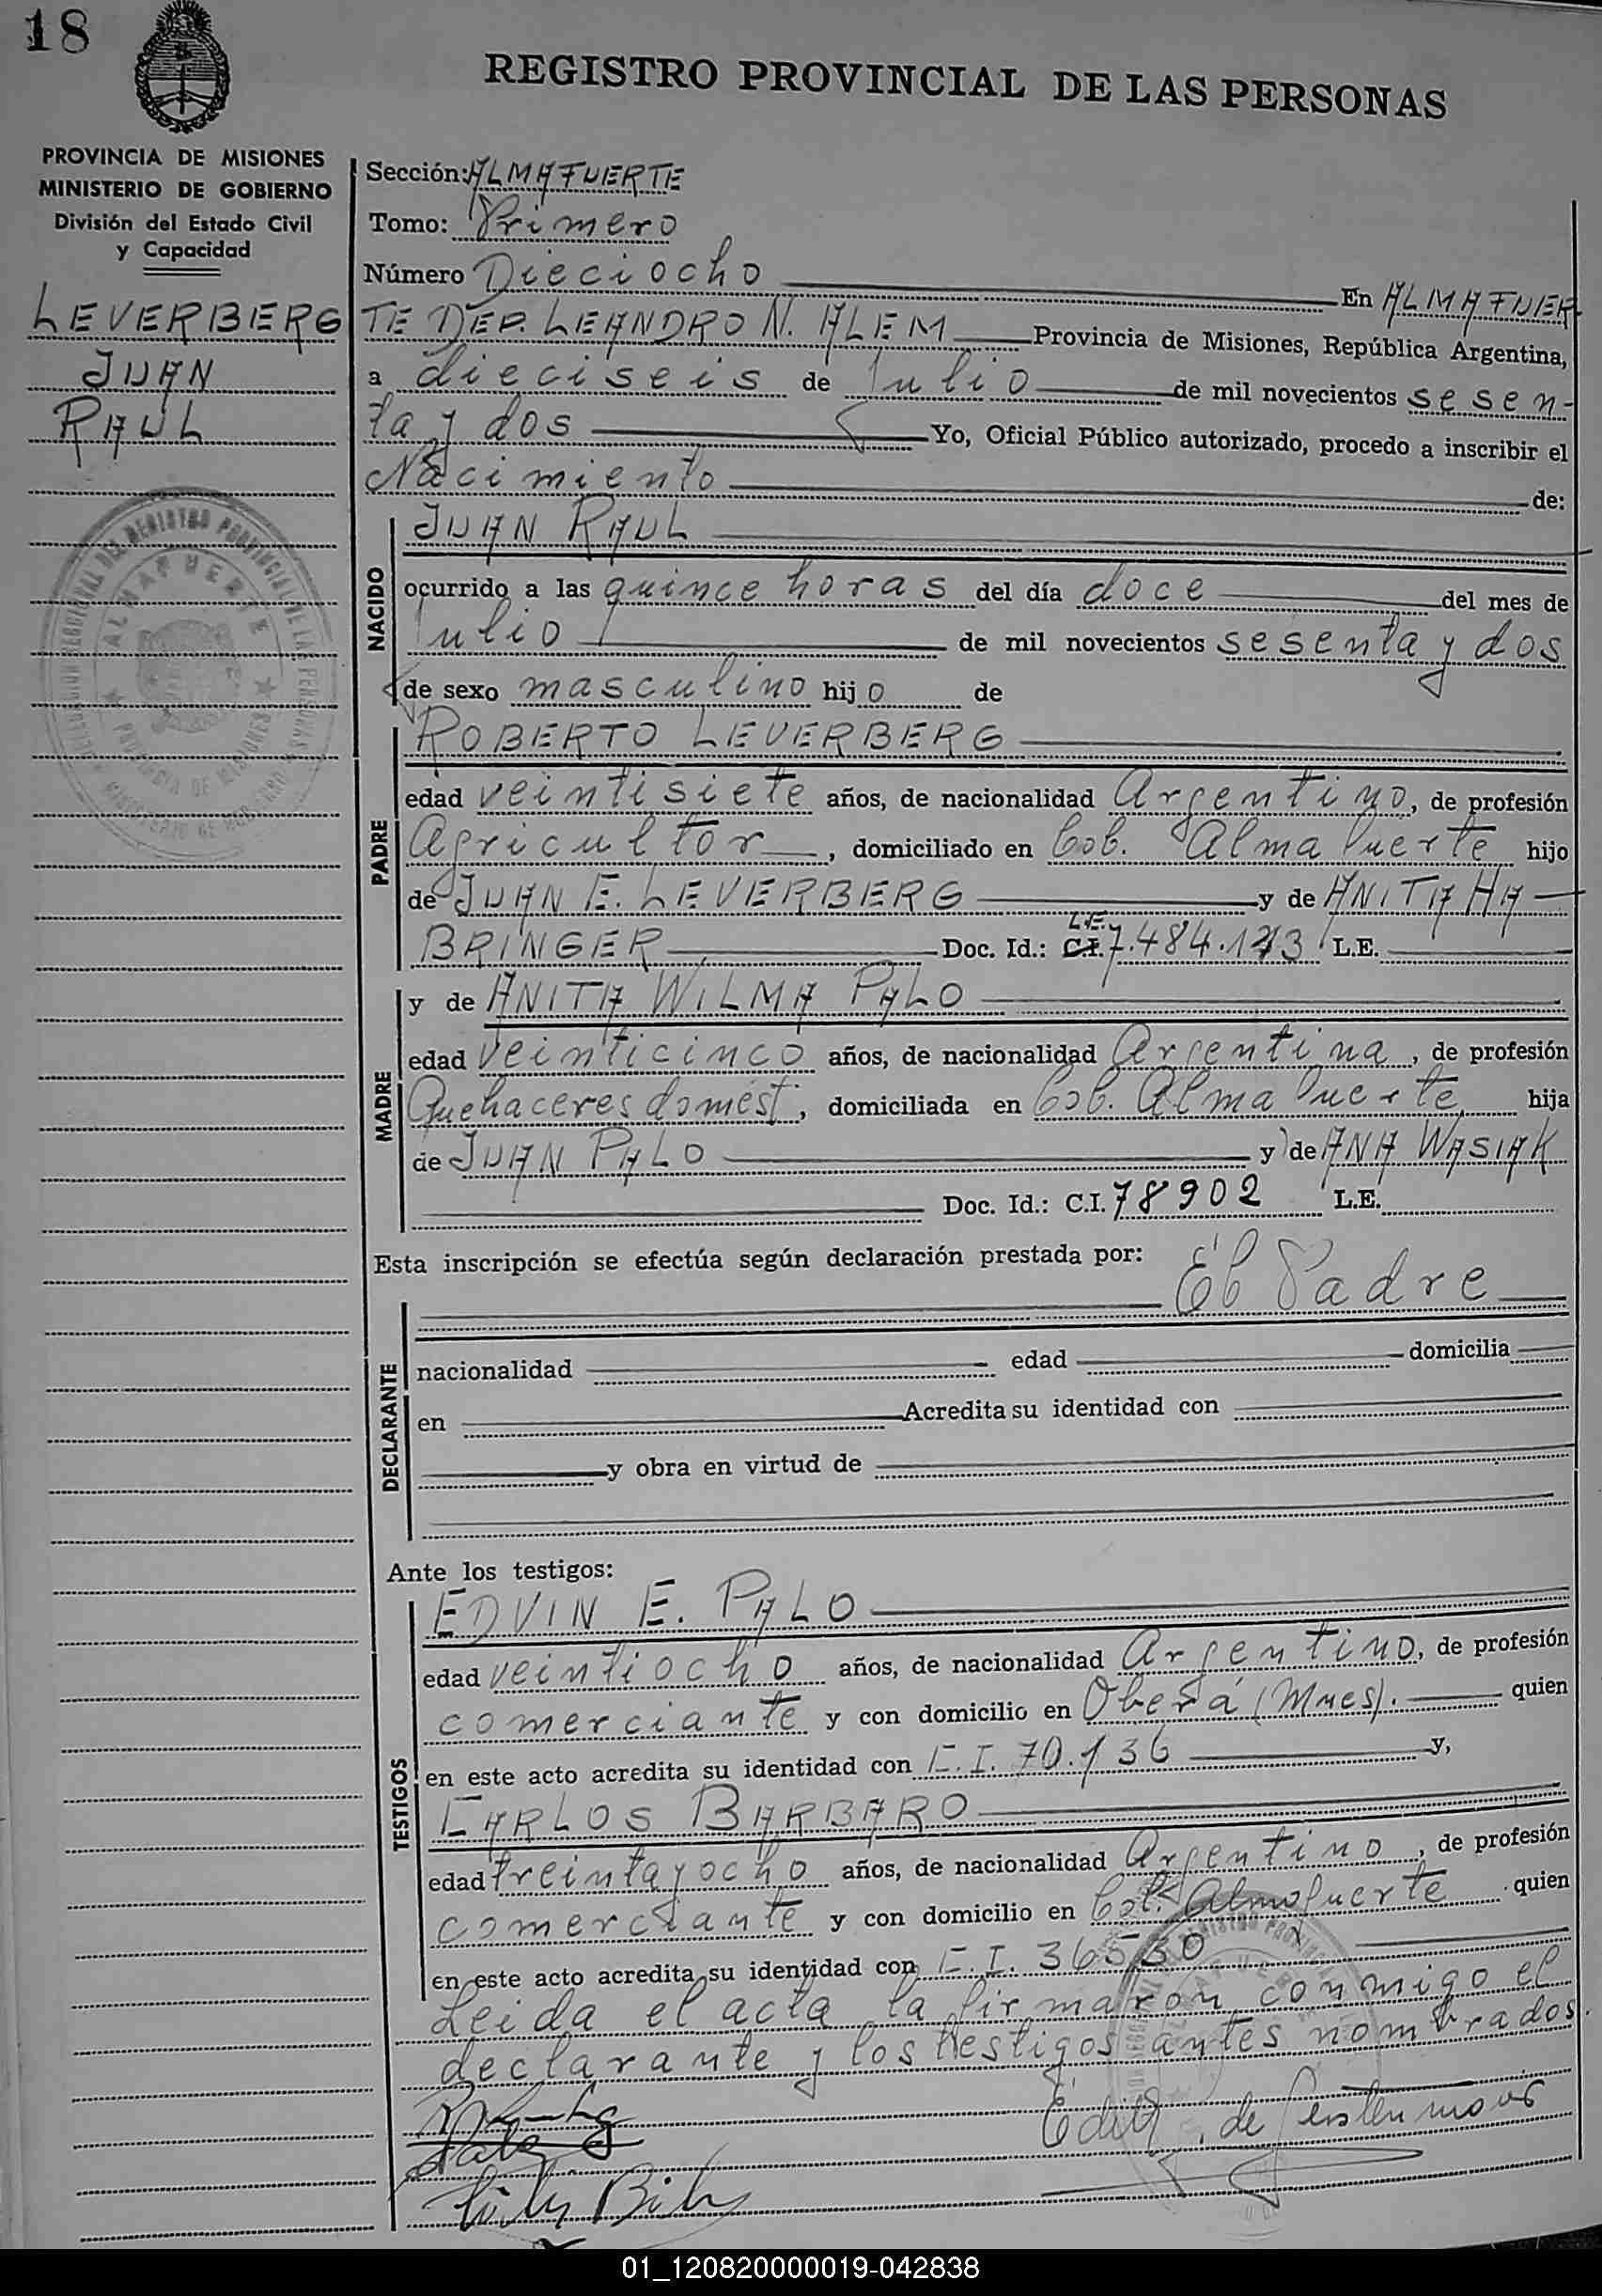 18
REGISTRO PROVINCIAL DE LAS PERSONAS
PROVINCIA DE MISIONES
MINISTERIO DE GOBIERNO
División del Estado Civil
y Capacidad
LEVERBERG
JUAN
RAUL
Sección: ALMAFUERTE
Tomo: Primero
Número Dieciocho En ALMAFUER
TE DEP. LEANDRO N. ALEM Provincia de Misiones, República Argentina,
a dieciseis de Julio de mil novecientos sesen-
ta y dos Yo, Oficial Público autorizado, procedo a inscribir el
Nacimiento de:
NACIDO
JUAN RAUL
ocurrido a las quince horas del día doce del mes de
Julio de mil novecientos sesenta y dos
de sexo masculino hijo de
PADRE
ROBERTO LEVERBERG
edad veintisiete años, de nacionalidad Argentino, de profesión
Agricultor, domiciliado en Col. Almafuerte hijo
de JUAN E. LEVERBERG y de ANITA HA-
BRINGER Doc. Id.: C.I. L.E. 7.484. L.E.
MADRE
y de ANITA WILMA PALO
edad veinticinco años, de nacionalidad Argentina, de profesión
Quehaceres domést, domiciliada en Col. Almafuerte, hija
de JUAN PALO y de ANA WASIAK
Doc. Id.: C.I. 78902 L.E.
Esta inscripción se efectúa según declaración prestada por: El Padre
DECLARANTE
nacionalidad edad domicilia
en Acredita su identidad con
y obra en virtud de
Ante los testigos:
TESTIGOS
EDVIN E. PALO
edad veintiocho años, de nacionalidad Argentino, de profesión
comerciante y con domicilio en Oberá (Mnes). quien
en este acto acredita su identidad con C.I. 70.136 y,
CARLOS BARBARO
edad treinta y ocho años, de nacionalidad Argentino, de profesión
comerciante y con domicilio en Col. Almafuerte quien
en este acto acredita su identidad con C.I. 36530
Leida el acta la firmaron conmigo el
declarante y los testigos antes nombrados.
Edith de
01_120820000019-042838